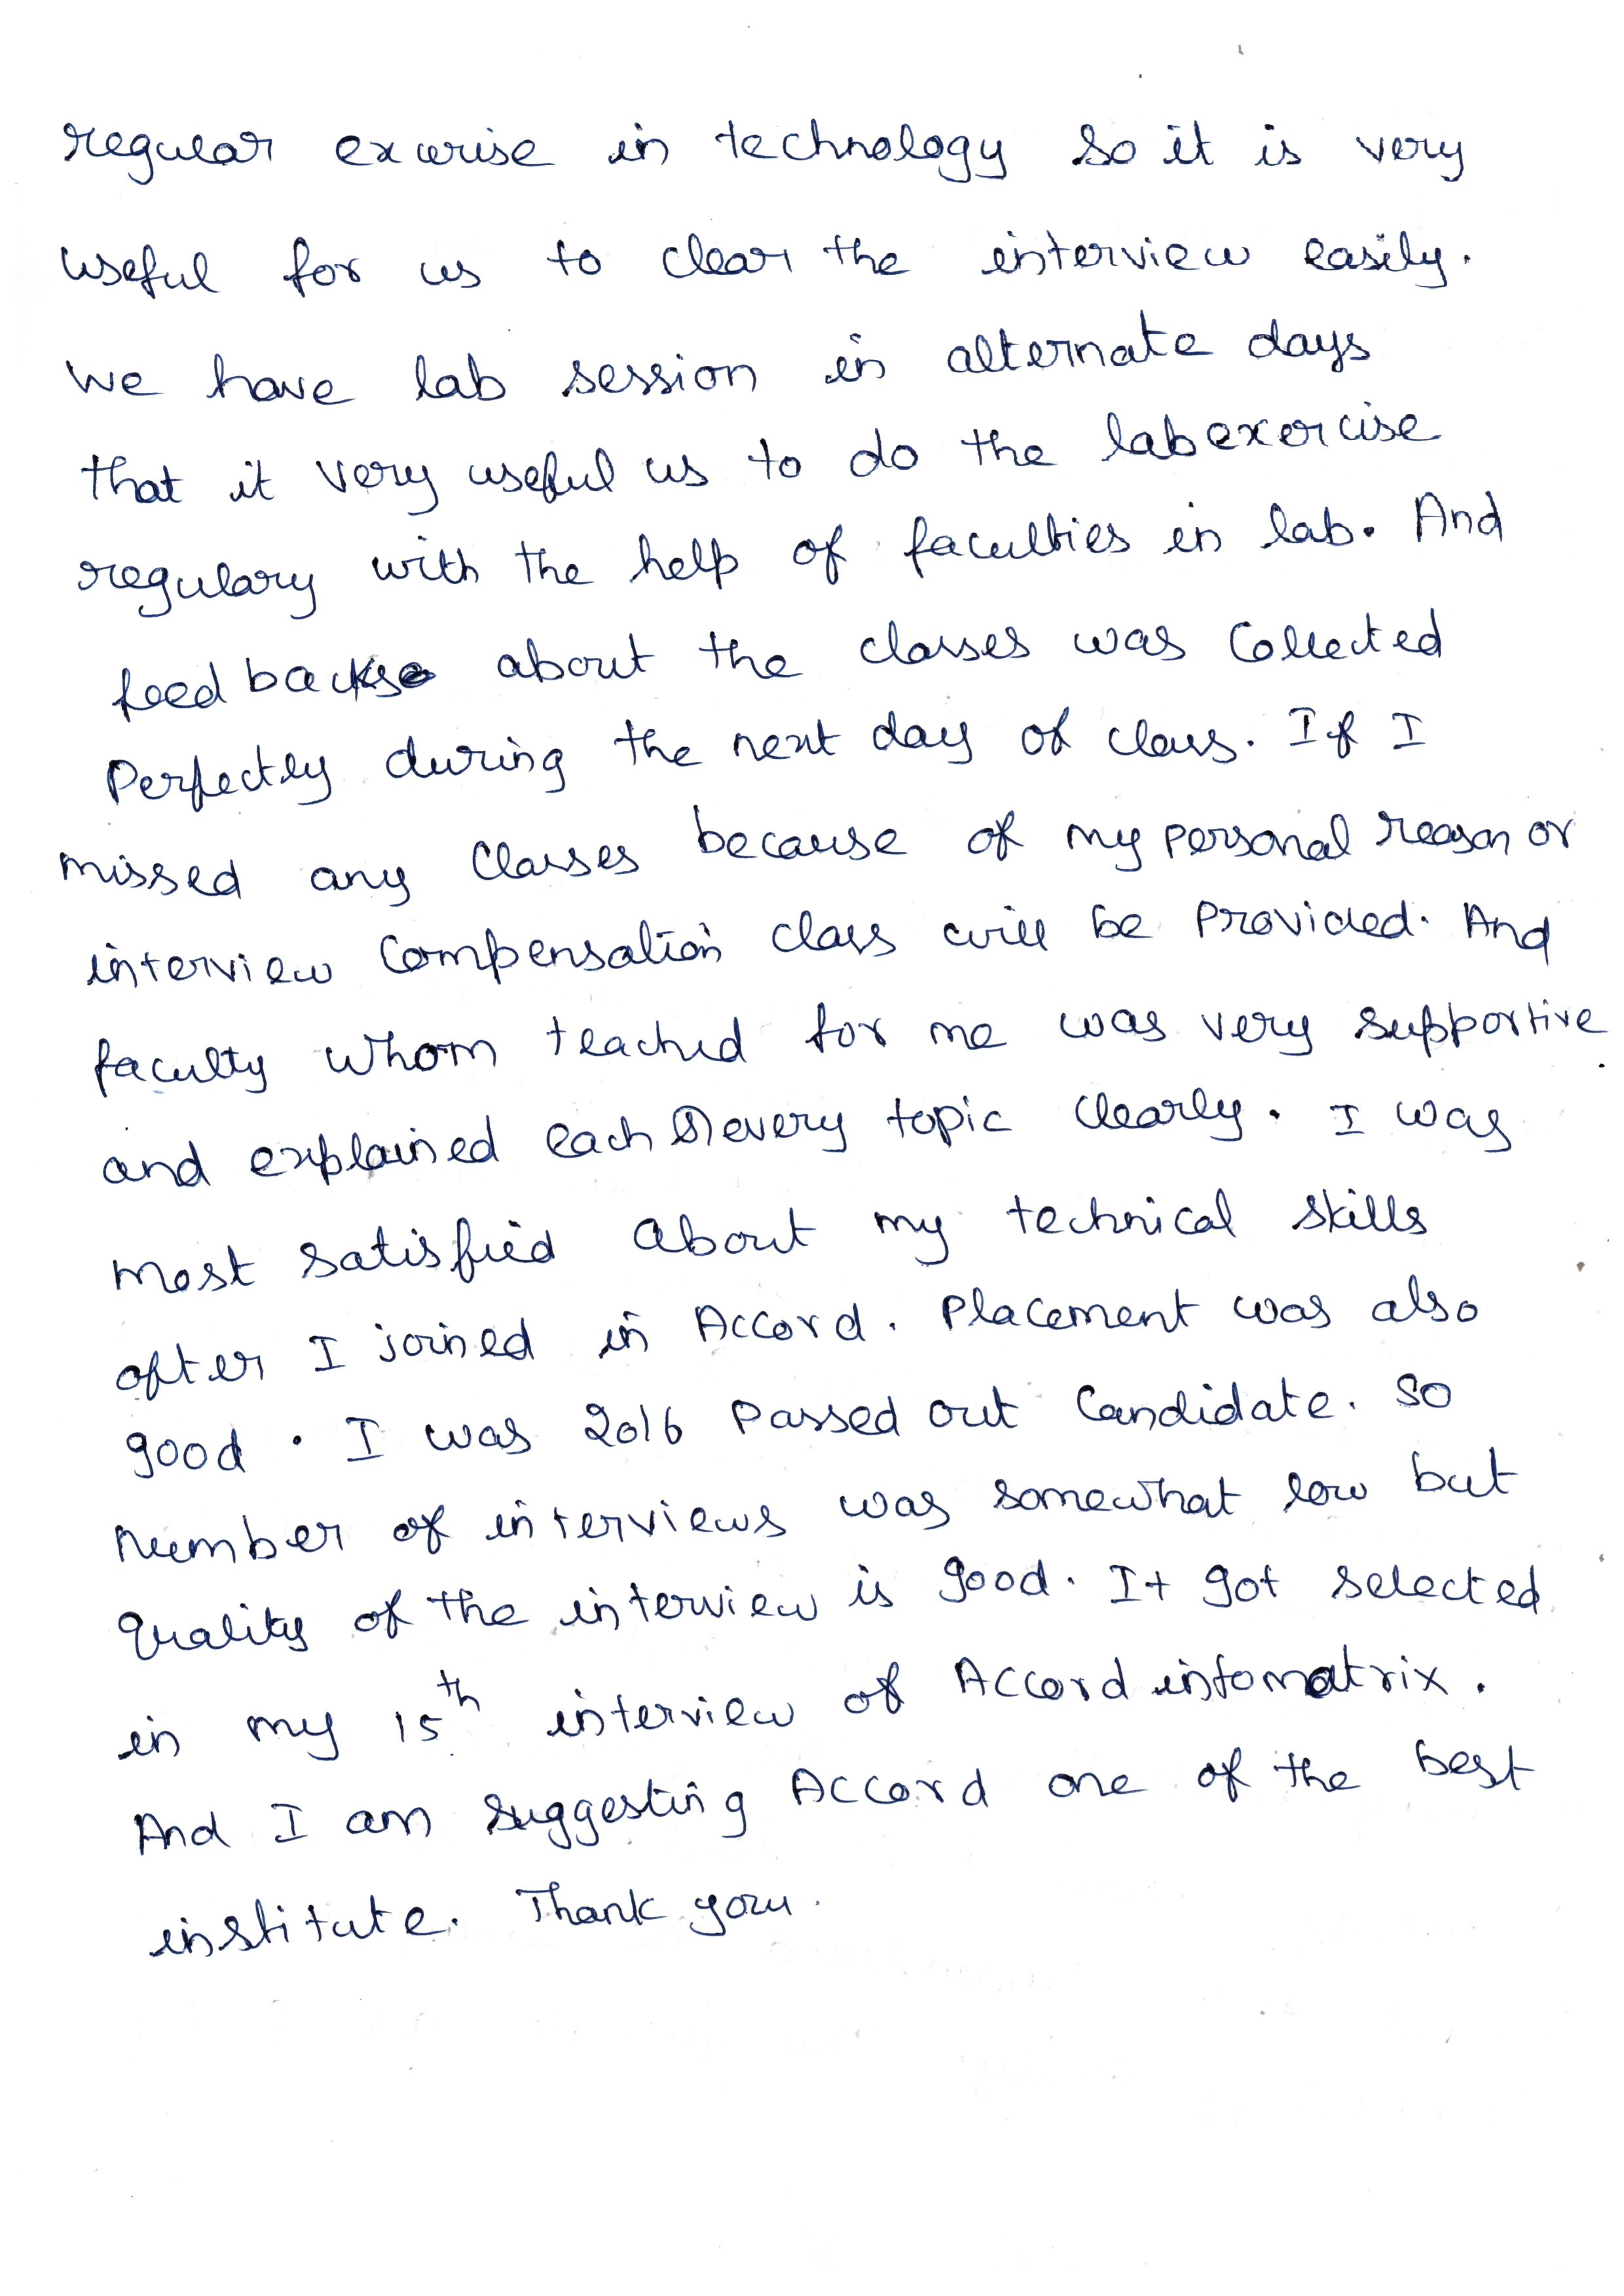 regular excerise in technology so it is very
useful for us to clear the interview easily.
We have lab session in alternate days
that it very useful us to do the lab exercise
regulary with the help of faculties in lab. And
feed backs about the classes was Collected
Perfectly during the next day of class. If I
missed any Classes because of my personal reason or
interview Compensation class will be Provided. And
faculty whom teached for me was very supportive
and explained each & every topic clearly. I was
most satisfied about my technical skills
after I joined in Accord. Placement was also
good. I was 2016 Passed out Candidate. So
Number of interviews was somewhat low but
quality of the interview is good. It got selected
in my 15th interview of Accord infomatrix.
And I am suggesting Accord one of the best
institute. Thank you.